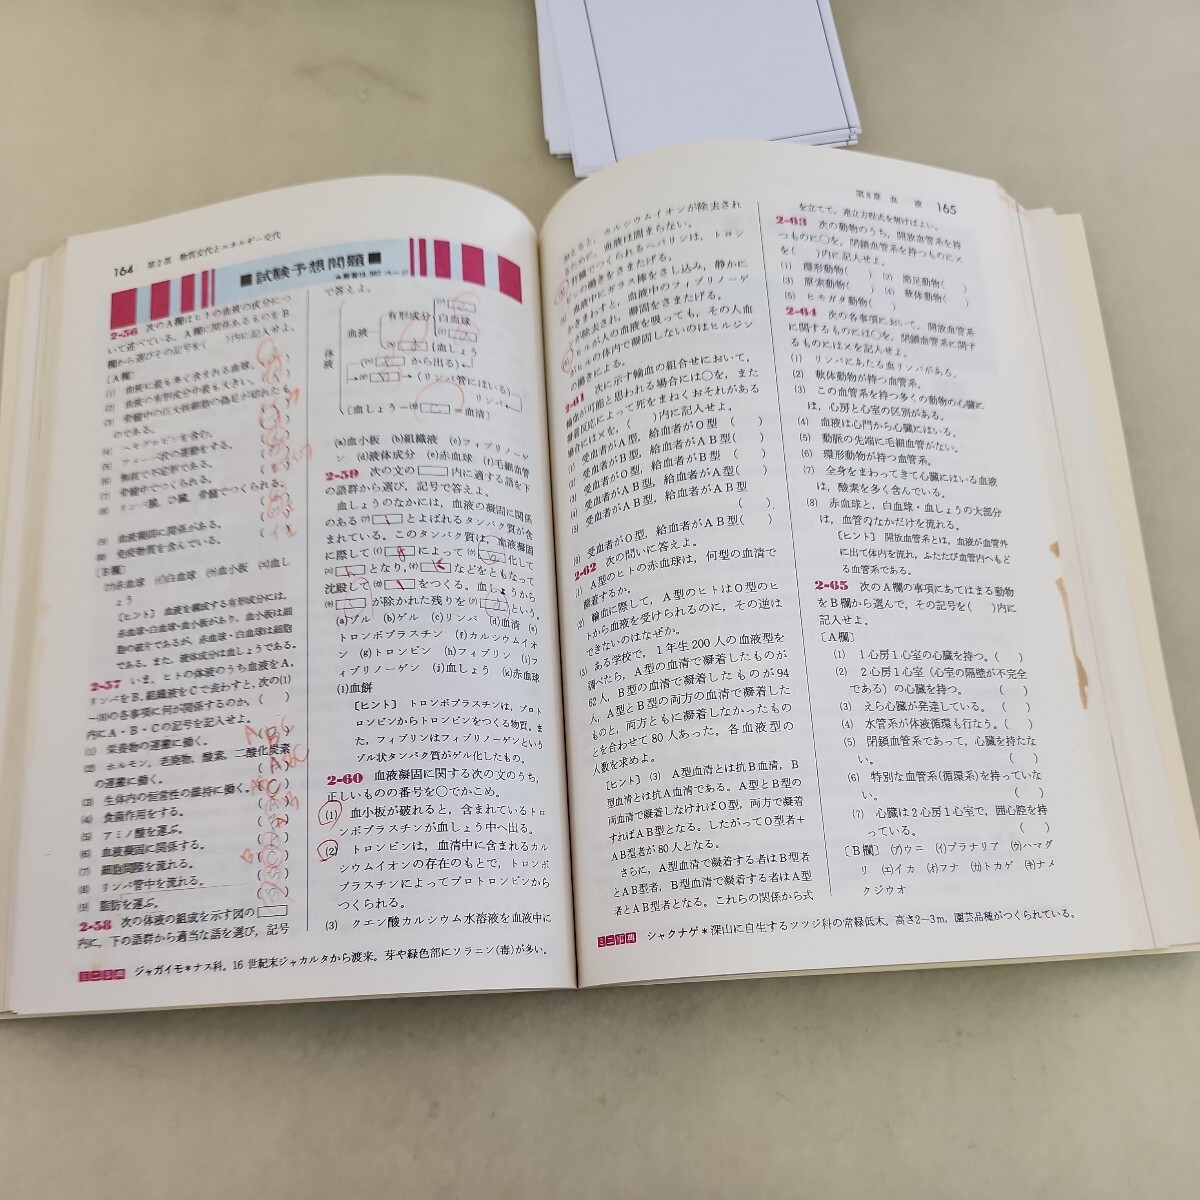 164 第2部 物質交代とエネルギー交代
■試験予想問題■
2-56 次のA欄はヒトの血液の成分につ
いて述べている。A欄に関係あるものをB
欄から選びその記号を( )内に記入せよ。
〔A欄〕
(1) 血液に最も多く含まれる血球。
(2) 血液の有形成分の最も大きい。
(3) 骨髄中の巨大核細胞の偽足が切れたも
のである。
(4) ヘモグロビンを含む。
(5) アメーバ状の運動をする。
(6) 無核で不定形である。
(7) 骨髄中でつくられる。
(8) リンパ腺、ひ臓、骨髄でつくられる。
(9) 血液凝固に関係がある。
(10) 免疫物質を含んでいる。
〔B欄〕
(ア)赤血球 (イ)白血球 (ウ)血小板 (エ)血し
ょう
〔ヒント〕 血液を構成する有形成分には,
赤血球・白血球・血小板があり, 血小板は細
胞の破片であるが, 赤血球・白血球は細胞
である。また, 液体成分は血しょうである。
2-57 いま, ヒトの体液のうち血液をA,
リンパをB, 組織液をCで表わすと, 次の(1)
~(9)の各事項に何が関係するのか, ( )
内にA・B・Cの記号を記入せよ。
(1) 栄養物の運搬に働く。
(2) ホルモン, 老廃物, 酸素, 二酸化炭素
の運搬に働く。
(3) 生体内の恒常性の維持に働く。
(4) 食菌作用をする。
(5) アミノ酸を運ぶ。
(6) 血液凝固に関係する。
(7) 細胞間隙を流れる。
(8) リンパ管中を流れる。
(9) 脂肪を運ぶ。
2-58 次の体液の組成を示す図の
内に, 下の語群から適当な語を選び, 記号
で答えよ。
体液
血液
有形成分
白血球
(血しょう
から出る)
→(リンパ管にはいる)
リンパ
〔血しょう−  =血清〕
(a)血小板 (b)組織液 (c)フィブリノーゲ
ン (d)液体成分 (e)赤血球 (f)毛細血管
2-59 次の文の  内に適する語を下
の語群から選び, 記号で答えよ。
血しょうのなかには, 血液の凝固に関係
のある  とよばれるタンパク質が含
まれている。このタンパク質は, 血液凝固
に際して  によって  化して
となり,  などをともなって
沈殿して  をつくる。血しょうから
が除かれた残りを  という。
(a)ゾル (b)ゲル (c)リンパ (d)血清 (e)
トロンボプラスチン (f)カルシウムイオ
ン (g)トロンビン (h)フィブリン (i)フ
ィブリノーゲン (j)血しょう (k)赤血球
(l)血餅
〔ヒント〕 トロンボプラスチンは, プロト
ロンビンからトロンビンをつくる物質。ま
た, フィブリンはフィブリノーゲンという
ゾル状タンパク質がゲル化したもの。
2-60 血液凝固に関する次の文のうち,
正しいものの番号を○でかこめ。
(1) 血小板が破れると, 含まれているトロ
ンボプラスチンが血しょう中へ出る。
(2) トロンビンは, 血清中に含まれるカル
シウムイオンの存在のもとで, トロンボ
プラスチンによってプロトロンビンから
つくられる。
(3) クエン酸カルシウム水溶液を血液中に
ミニ事典 ジャガイモ*ナス科。16世紀末ジャカルタから渡来。芽や緑色部にソラニン(毒)が多い。
第8章 血 液 165
加えると, カルシウムイオンが除去され
るために, 血液は固まらない。
肝臓でつくられるヘパリンは, トロン
ビンの働きをさまたげる。
血液中にガラス棒をさし込み, 静かに
かきまわすと, 血液中のフィブリノーゲ
ンが除去され, 凝固をさまたげる。
ヒルが人の血液を吸っても, その人血
がヒルの体内で凝固しないのはヒルジン
の働きによる。
2-61 次に示す輸血の組合せにおいて,
輸血が可能と思われる場合には○を, また
凝着反応によって死をまねくおそれがある
場合には×を, ( )内に記入せよ。
(1) 受血者がA型, 給血者がO型 ( )
(2) 受血者がB型, 給血者がAB型 ( )
(3) 受血者がO型, 給血者がB型 ( )
(4) 受血者がAB型, 給血者がA型( )
(5) 受血者がAB型, 給血者がAB型
( )
(6) 受血者がO型, 給血者がAB型( )
2-62 次の問いに答えよ。
(1) A型のヒトの赤血球は, 何型の血清で
凝着するか。
(2) 輸血に際して, A型のヒトはO型のヒ
トから血液を受けられるのに, その逆は
できないのはなぜか。
(3) ある学校で, 1年生200人の血液型を
調べたら, A型の血清で凝着したものが
62人, B型の血清で凝着したものが94
人, A型とB型の両方の血清で凝着した
ものと, 両方ともに凝着しなかったもの
とを合わせて80人あった。各血液型の
人数を求めよ。
〔ヒント〕(3) A型血清とは抗B血清, B
型血清とは抗A血清である。A型とB型の
両血清で凝着しなければO型, 両方で凝着
すればAB型となる。したがってO型者+
AB型者が80人となる。
さらに, A型血清で凝着する者はB型者
とAB型者, B型血清で凝着する者はA型
者とAB型者となる。これらの関係から式
を立てて, 連立方程式を解けばよい。
2-63 次の動物のうち, 開放血管系を持
つものに○を, 閉鎖血管系を持つものに×
を( )内に記入せよ。
(1) 環形動物( ) (2) 節足動物( )
(3) 原索動物( ) (4) 軟体動物( )
(5) ヒモガタ動物( )
2-64 次の各事項において, 開放血管系
に関するものには○を, 閉鎖血管系に関す
るものには×を記入せよ。
(1) リンパにあたる血リンパがある。
(2) 軟体動物が持つ血管系。
(3) この血管系を持つ多くの動物の心臓に
は, 心房と心室の区別がある。
(4) 血液は心門から心臓にはいる。
(5) 動脈の先端に毛細血管がない。
(6) 環形動物が持つ血管系。
(7) 全身をまわってきて心臓にはいる血液
は, 酸素を多く含んでいる。
(8) 赤血球と, 白血球・血しょうの大部分
は, 血管のなかだけを流れる。
〔ヒント〕 開放血管系とは, 血液が血管外
に出て体内を流れ, ふたたび血管内へもど
る血管系である。
2-65 次のA欄の事項にあてはまる動物
をB欄から選んで, その記号を( )内に
記入せよ。
〔A欄〕
(1) 1心房1心室の心臓を持つ。( )
(2) 2心房1心室(心室の隔壁が不完全
である)の心臓を持つ。 ( )
(3) えら心臓が発達している。 ( )
(4) 水管系が体液循環も行なう。( )
(5) 閉鎖血管系であって, 心臓を持たな
い。 ( )
(6) 特別な血管系(循環系)を持っていな
い。 ( )
(7) 心臓は2心房1心室で, 囲心腔を持
っている。 ( )
〔B欄〕 (ア)ウニ (イ)プラナリア (ウ)ハマグ
リ (エ)イカ (オ)フナ (カ)トカゲ (キ)ナメ
クジウオ
ミニ事典 シャクナゲ*深山に自生するツツジ科の常緑低木。高さ2~3m, 園芸品種がつくられている。